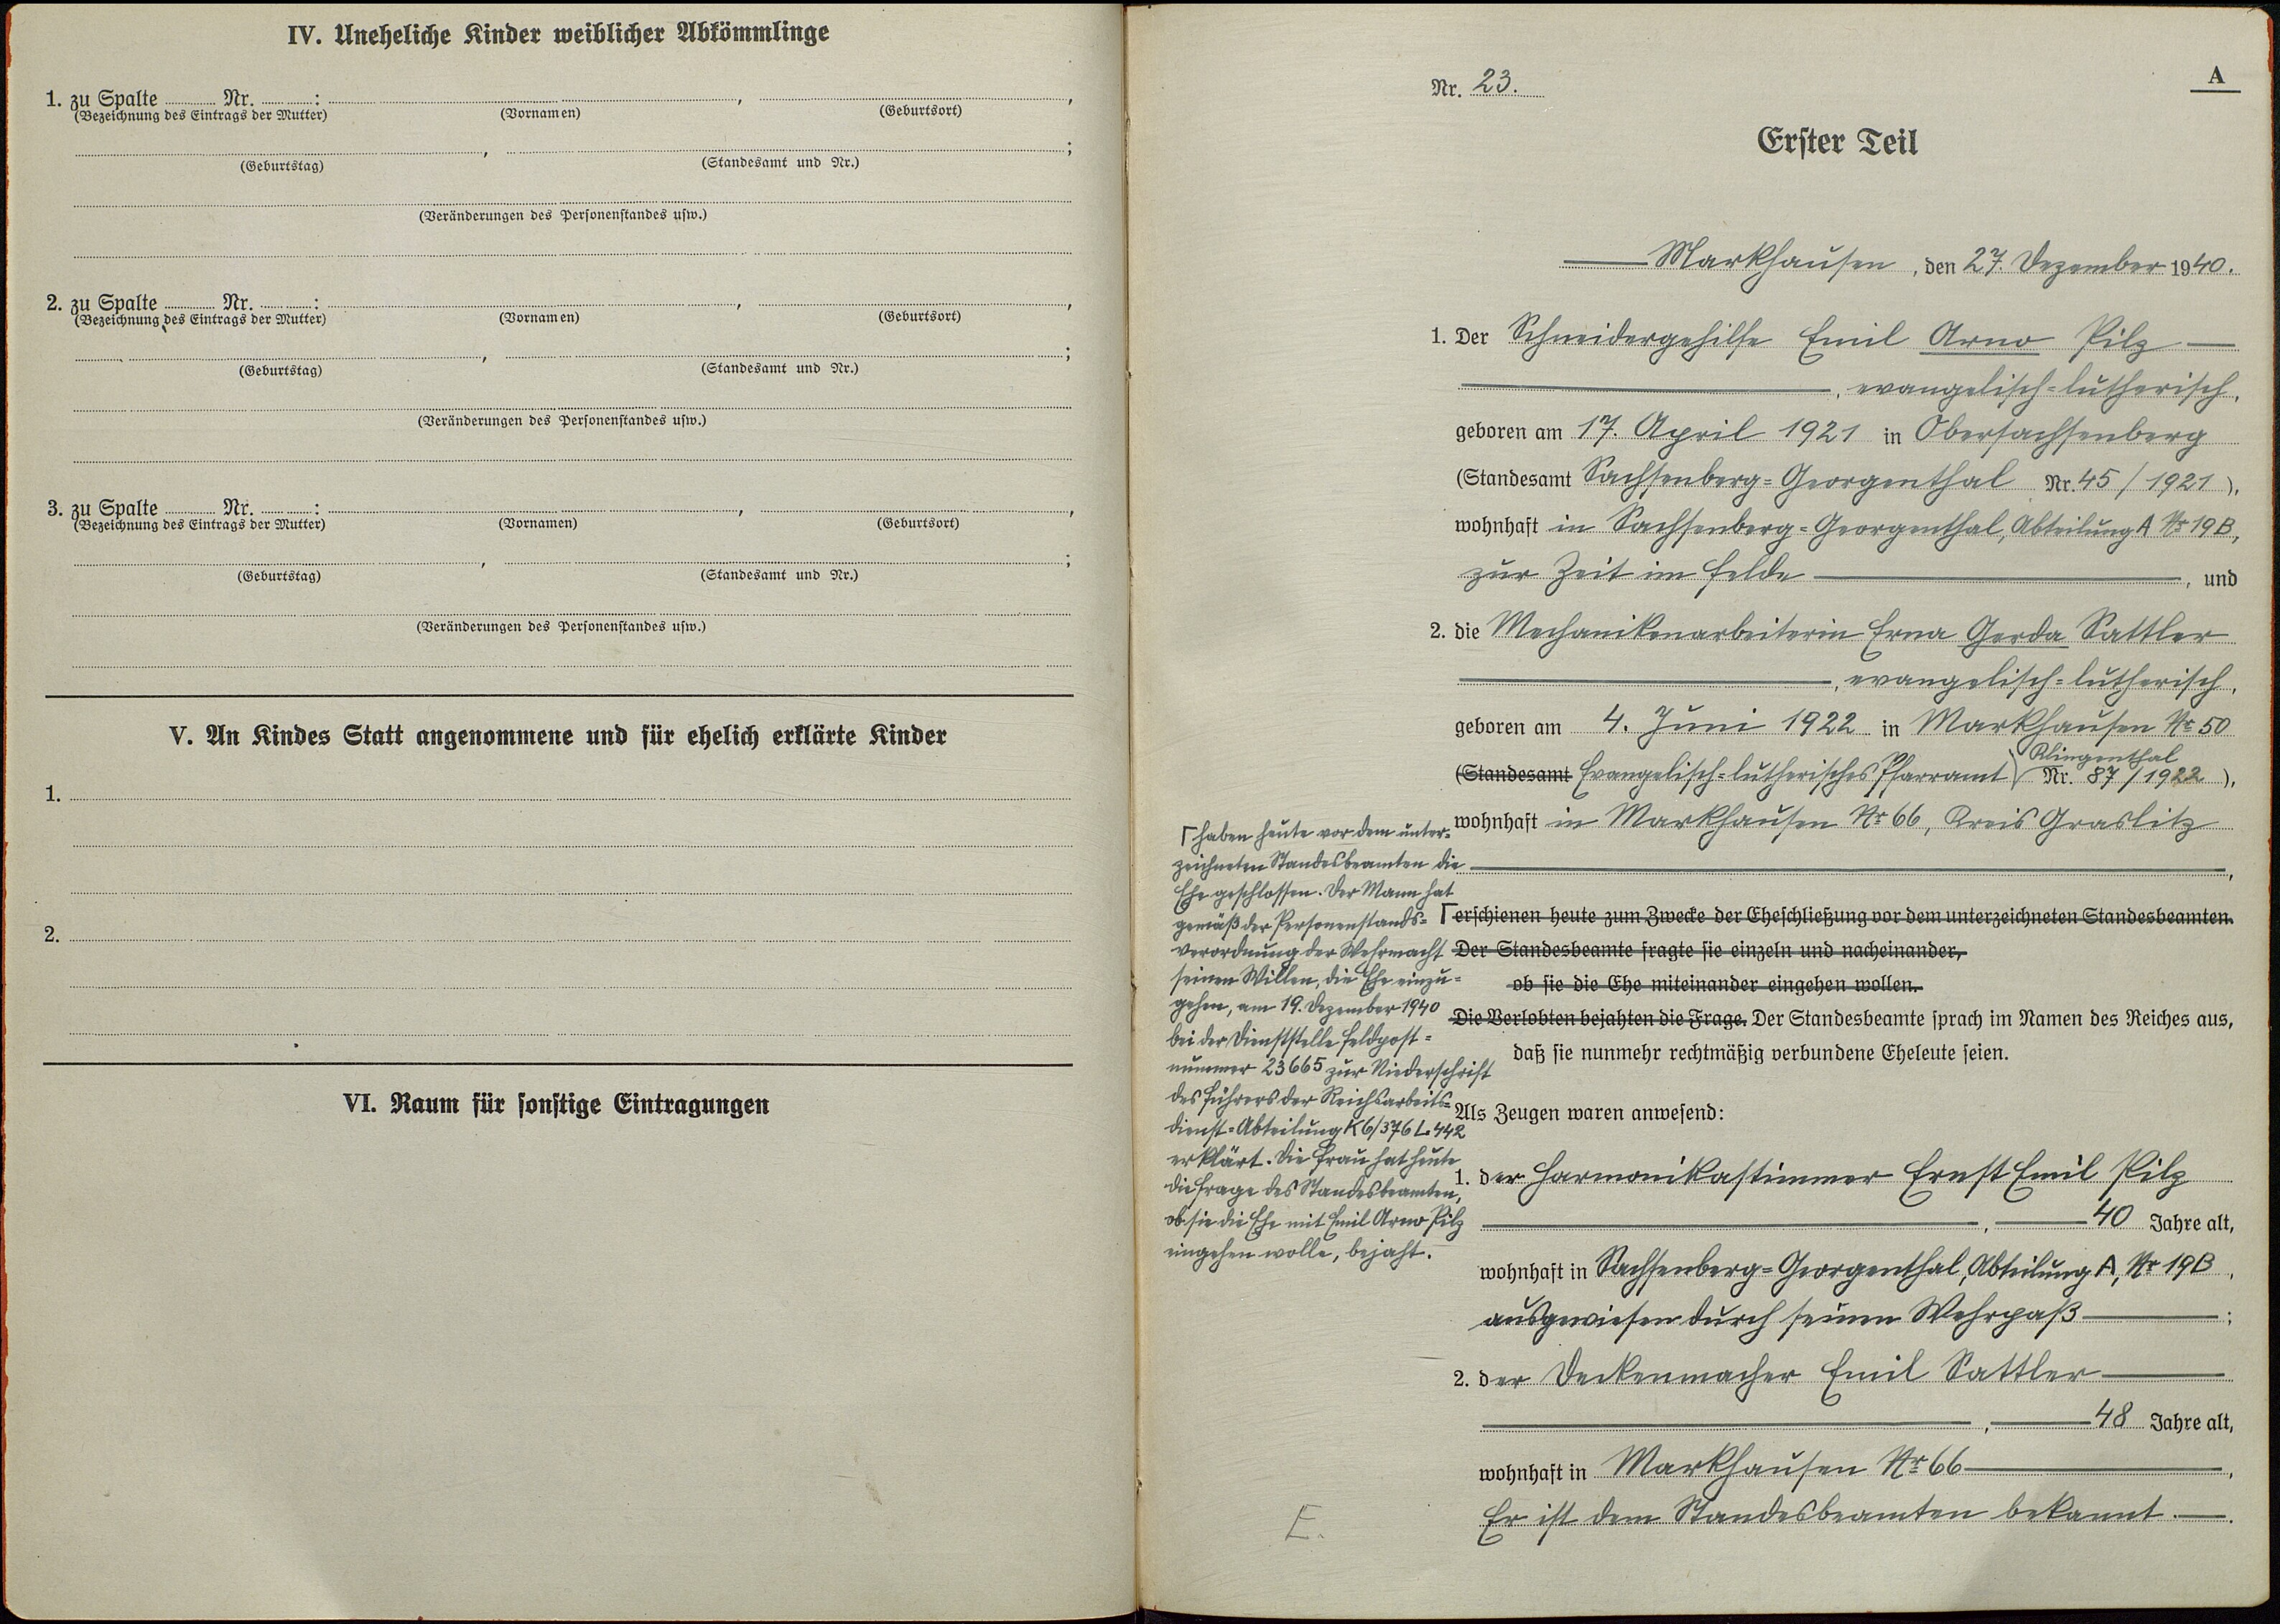 IV. Uneheliche Kinder weiblicher Abkömmlinge
1. zu Spalte ........ Nr. ........ : ........ , ........ ,
(Bezeichnung des Eintrags der Mutter) (Vornamen) (Geburtsort)
........ , ........ ;
(Geburtstag) (Standesamt und Nr.)
(Veränderungen des Personenstandes usw.)
2. zu Spalte ........ Nr. ........ : ........ , ........ ,
(Bezeichnung des Eintrags der Mutter) (Vornamen) (Geburtsort)
........ , ........ ;
(Geburtstag) (Standesamt und Nr.)
(Veränderungen des Personenstandes usw.)
3. zu Spalte ........ Nr. ........ : ........ , ........ ,
(Bezeichnung des Eintrags der Mutter) (Vornamen) (Geburtsort)
........ , ........ ;
(Geburtstag) (Standesamt und Nr.)
(Veränderungen des Personenstandes usw.)
V. An Kindes Statt angenommene und für ehelich erklärte Kinder
1.
2.
VI. Raum für sonstige Eintragungen
A
Nr. 23.
Erster Teil
Markhausen, den 27. Dezember 1940.
1. Der Schneidergehilfe Emil Arno Pilz
, evangelisch-lutherisch,
geboren am 17. April 1921 in Obersachsenberg
(Standesamt Sachsenberg-Georgenthal Nr. 45/1921),
wohnhaft in Sachsenberg-Georgenthal, Abteilung A Nr 19B,
zur Zeit im Felde, und
2. die Mechanikenarbeiterin Erna Gerda Sattler
, evangelisch-lutherisch,
geboren am 4. Juni 1922 in Markhausen Nr 50
Klingenthal
(Standesamt Evangelisch-lutherisches Pfarramt Nr. 87/1922),
wohnhaft in Markhausen Nr 66, Kreis Graslitz
,
erschienen heute zum Zwecke der Eheschließung vor dem unterzeichneten Standesbeamten.
Der Standesbeamte fragte sie einzeln und nacheinander,
ob sie die Ehe miteinander eingehen wollen.
Die Verlobten bejahten die Frage. Der Standesbeamte sprach im Namen des Reiches aus,
daß sie nunmehr rechtmäßig verbundene Eheleute seien.
haben heute vor dem unter-
zeichneten Standesbeamten die
Ehe geschlossen. Der Mann hat
gemäß der Personenstands-
verordnung der Wehrmacht
seinen Willen, die Ehe einzu-
gehen, am 19. Dezember 1940
bei der Dienststelle Feldpost-
nummer 23665 zur Niederschrift
des Führers der Reichsarbeits-
dienst-Abteilung K6/376 L. 442
erklärt. Die Frau hat heute
die Frage des Standesbeamten,
ob sie die Ehe mit Emil Arno Pilz
eingehen wolle, bejaht.
Als Zeugen waren anwesend:
1. der Harmonikastimmer Ernst Emil Pilz
, 40 Jahre alt,
wohnhaft in Sachsenberg-Georgenthal, Abteilung A, Nr 19B,
ausgewiesen durch seinen Wehrpaß;
2. der Deckenmacher Emil Sattler
, 48 Jahre alt,
wohnhaft in Markhausen Nr 66,
Er ist dem Standesbeamten bekannt.
E.